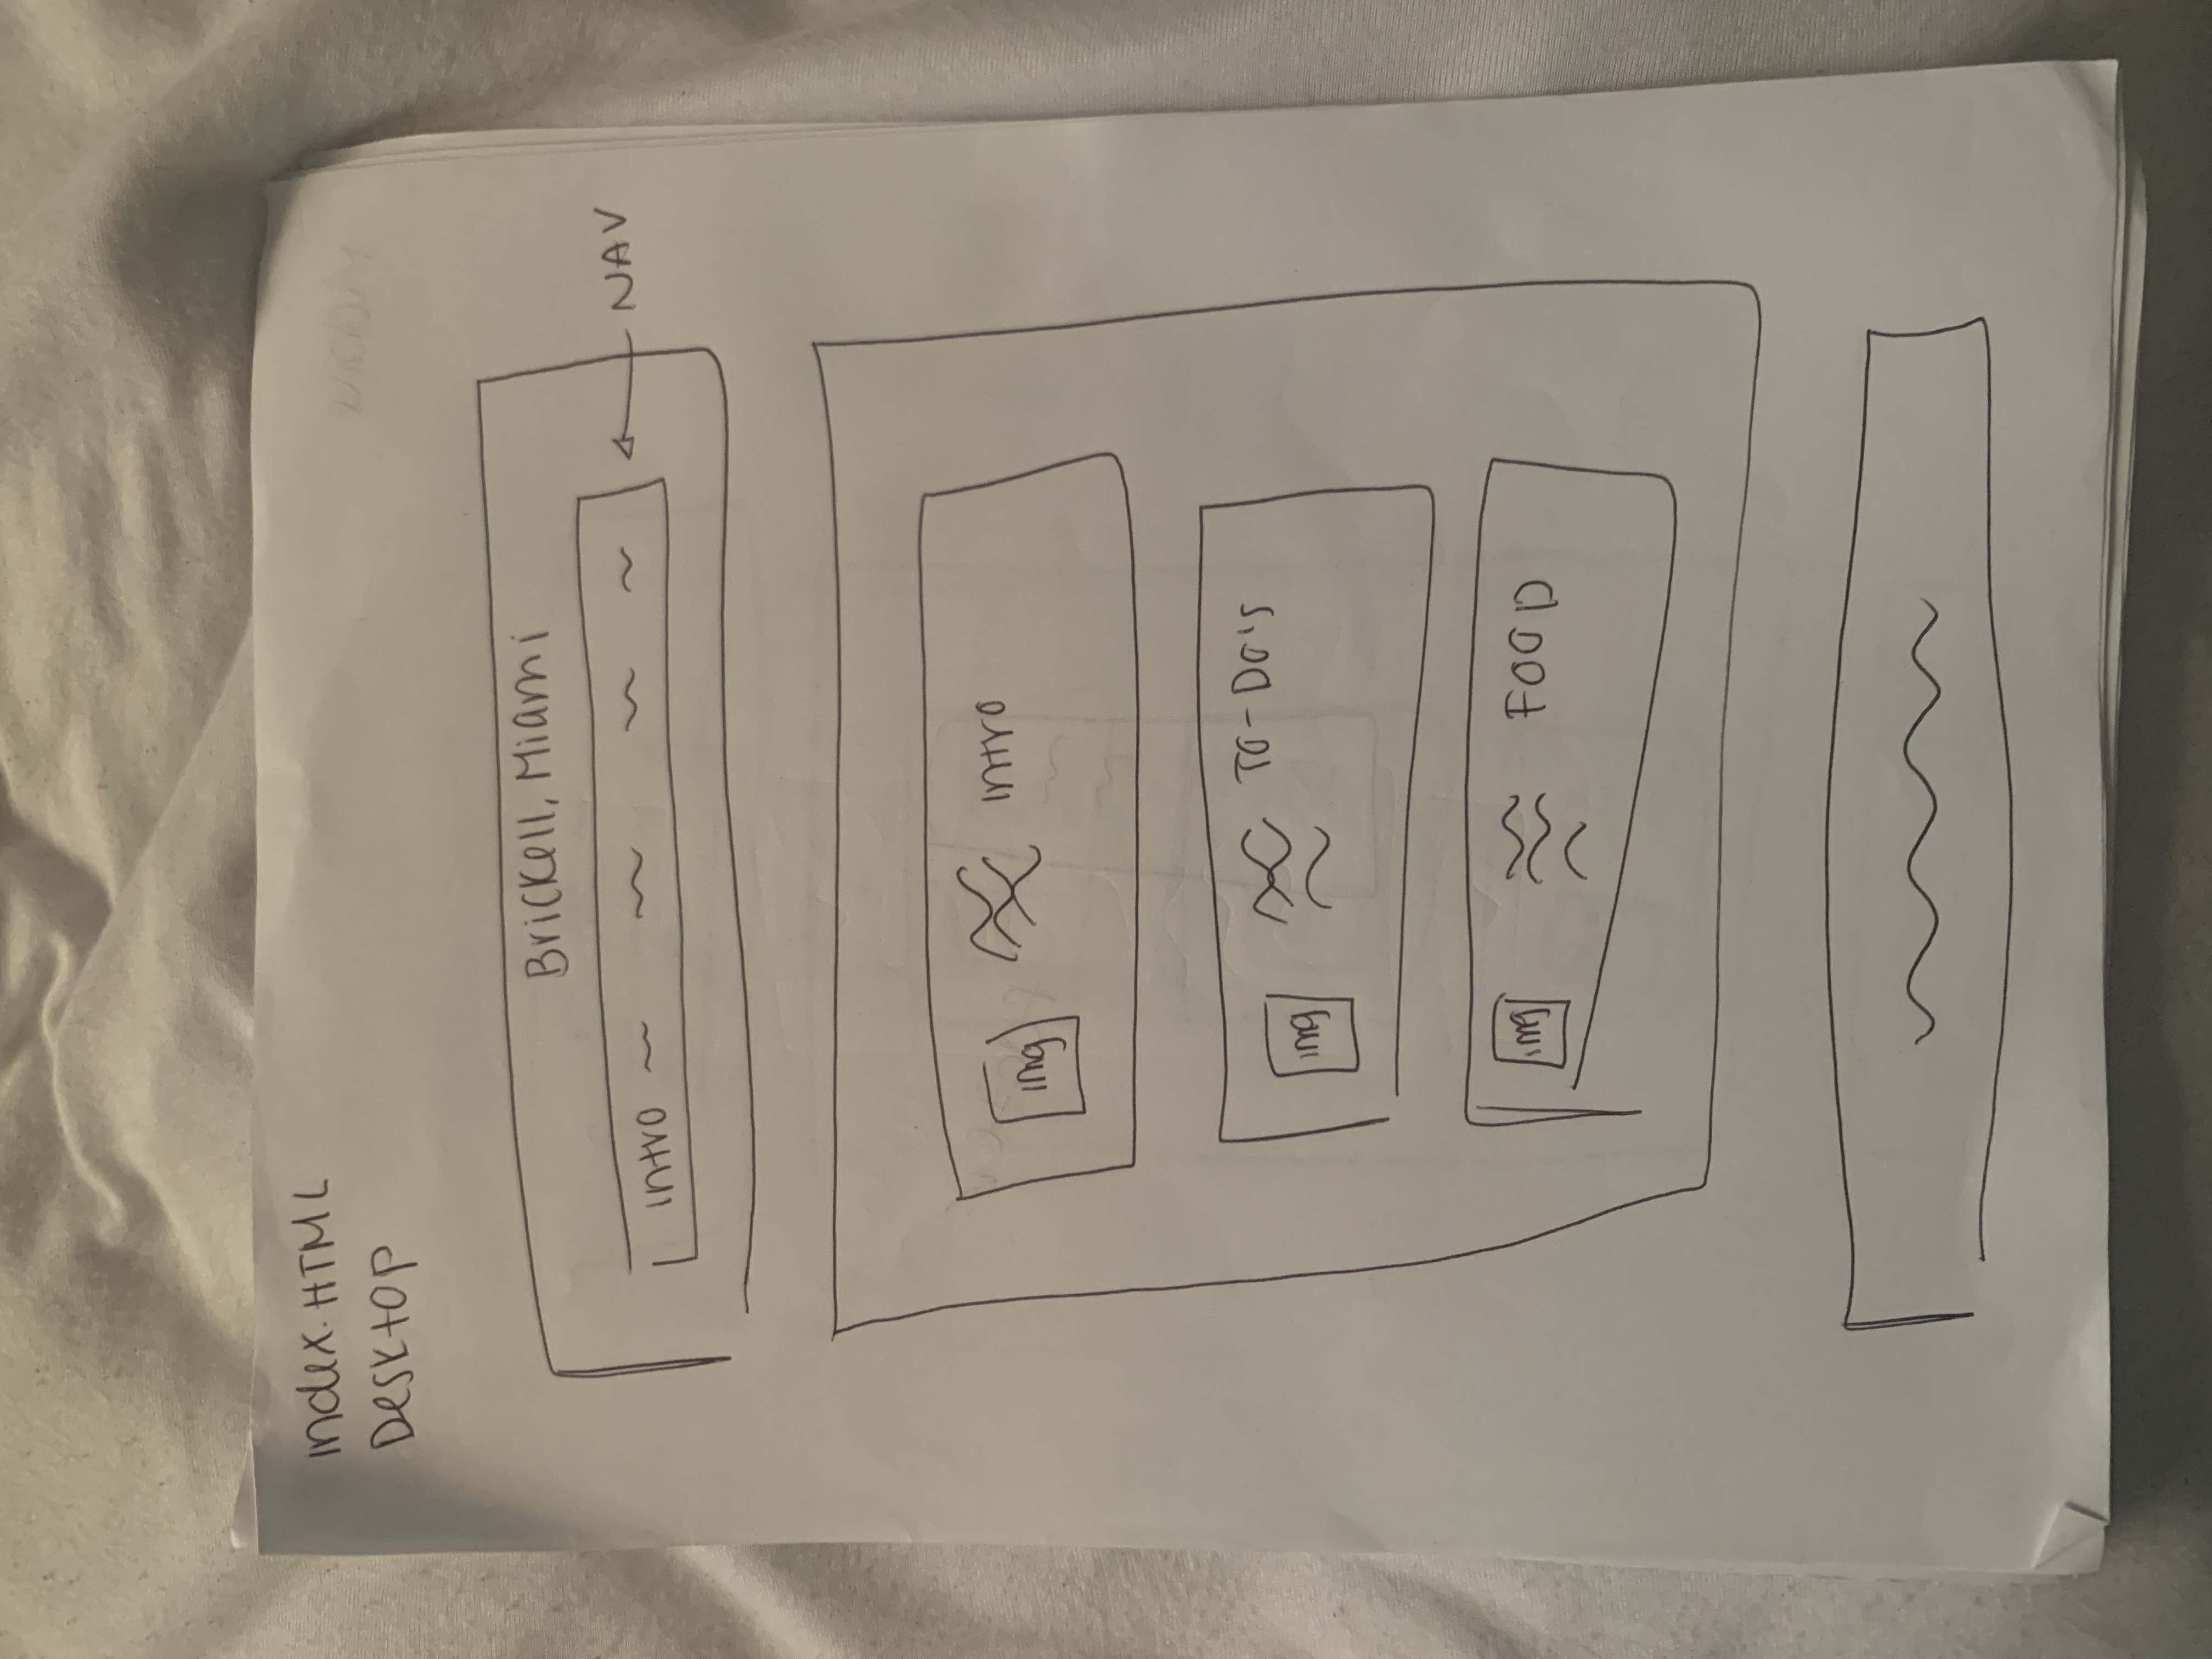 index.HTML
Desktop
Brickell, Miami
NAV
intro
intro
img
TO-DO'S
img
FOOD
img